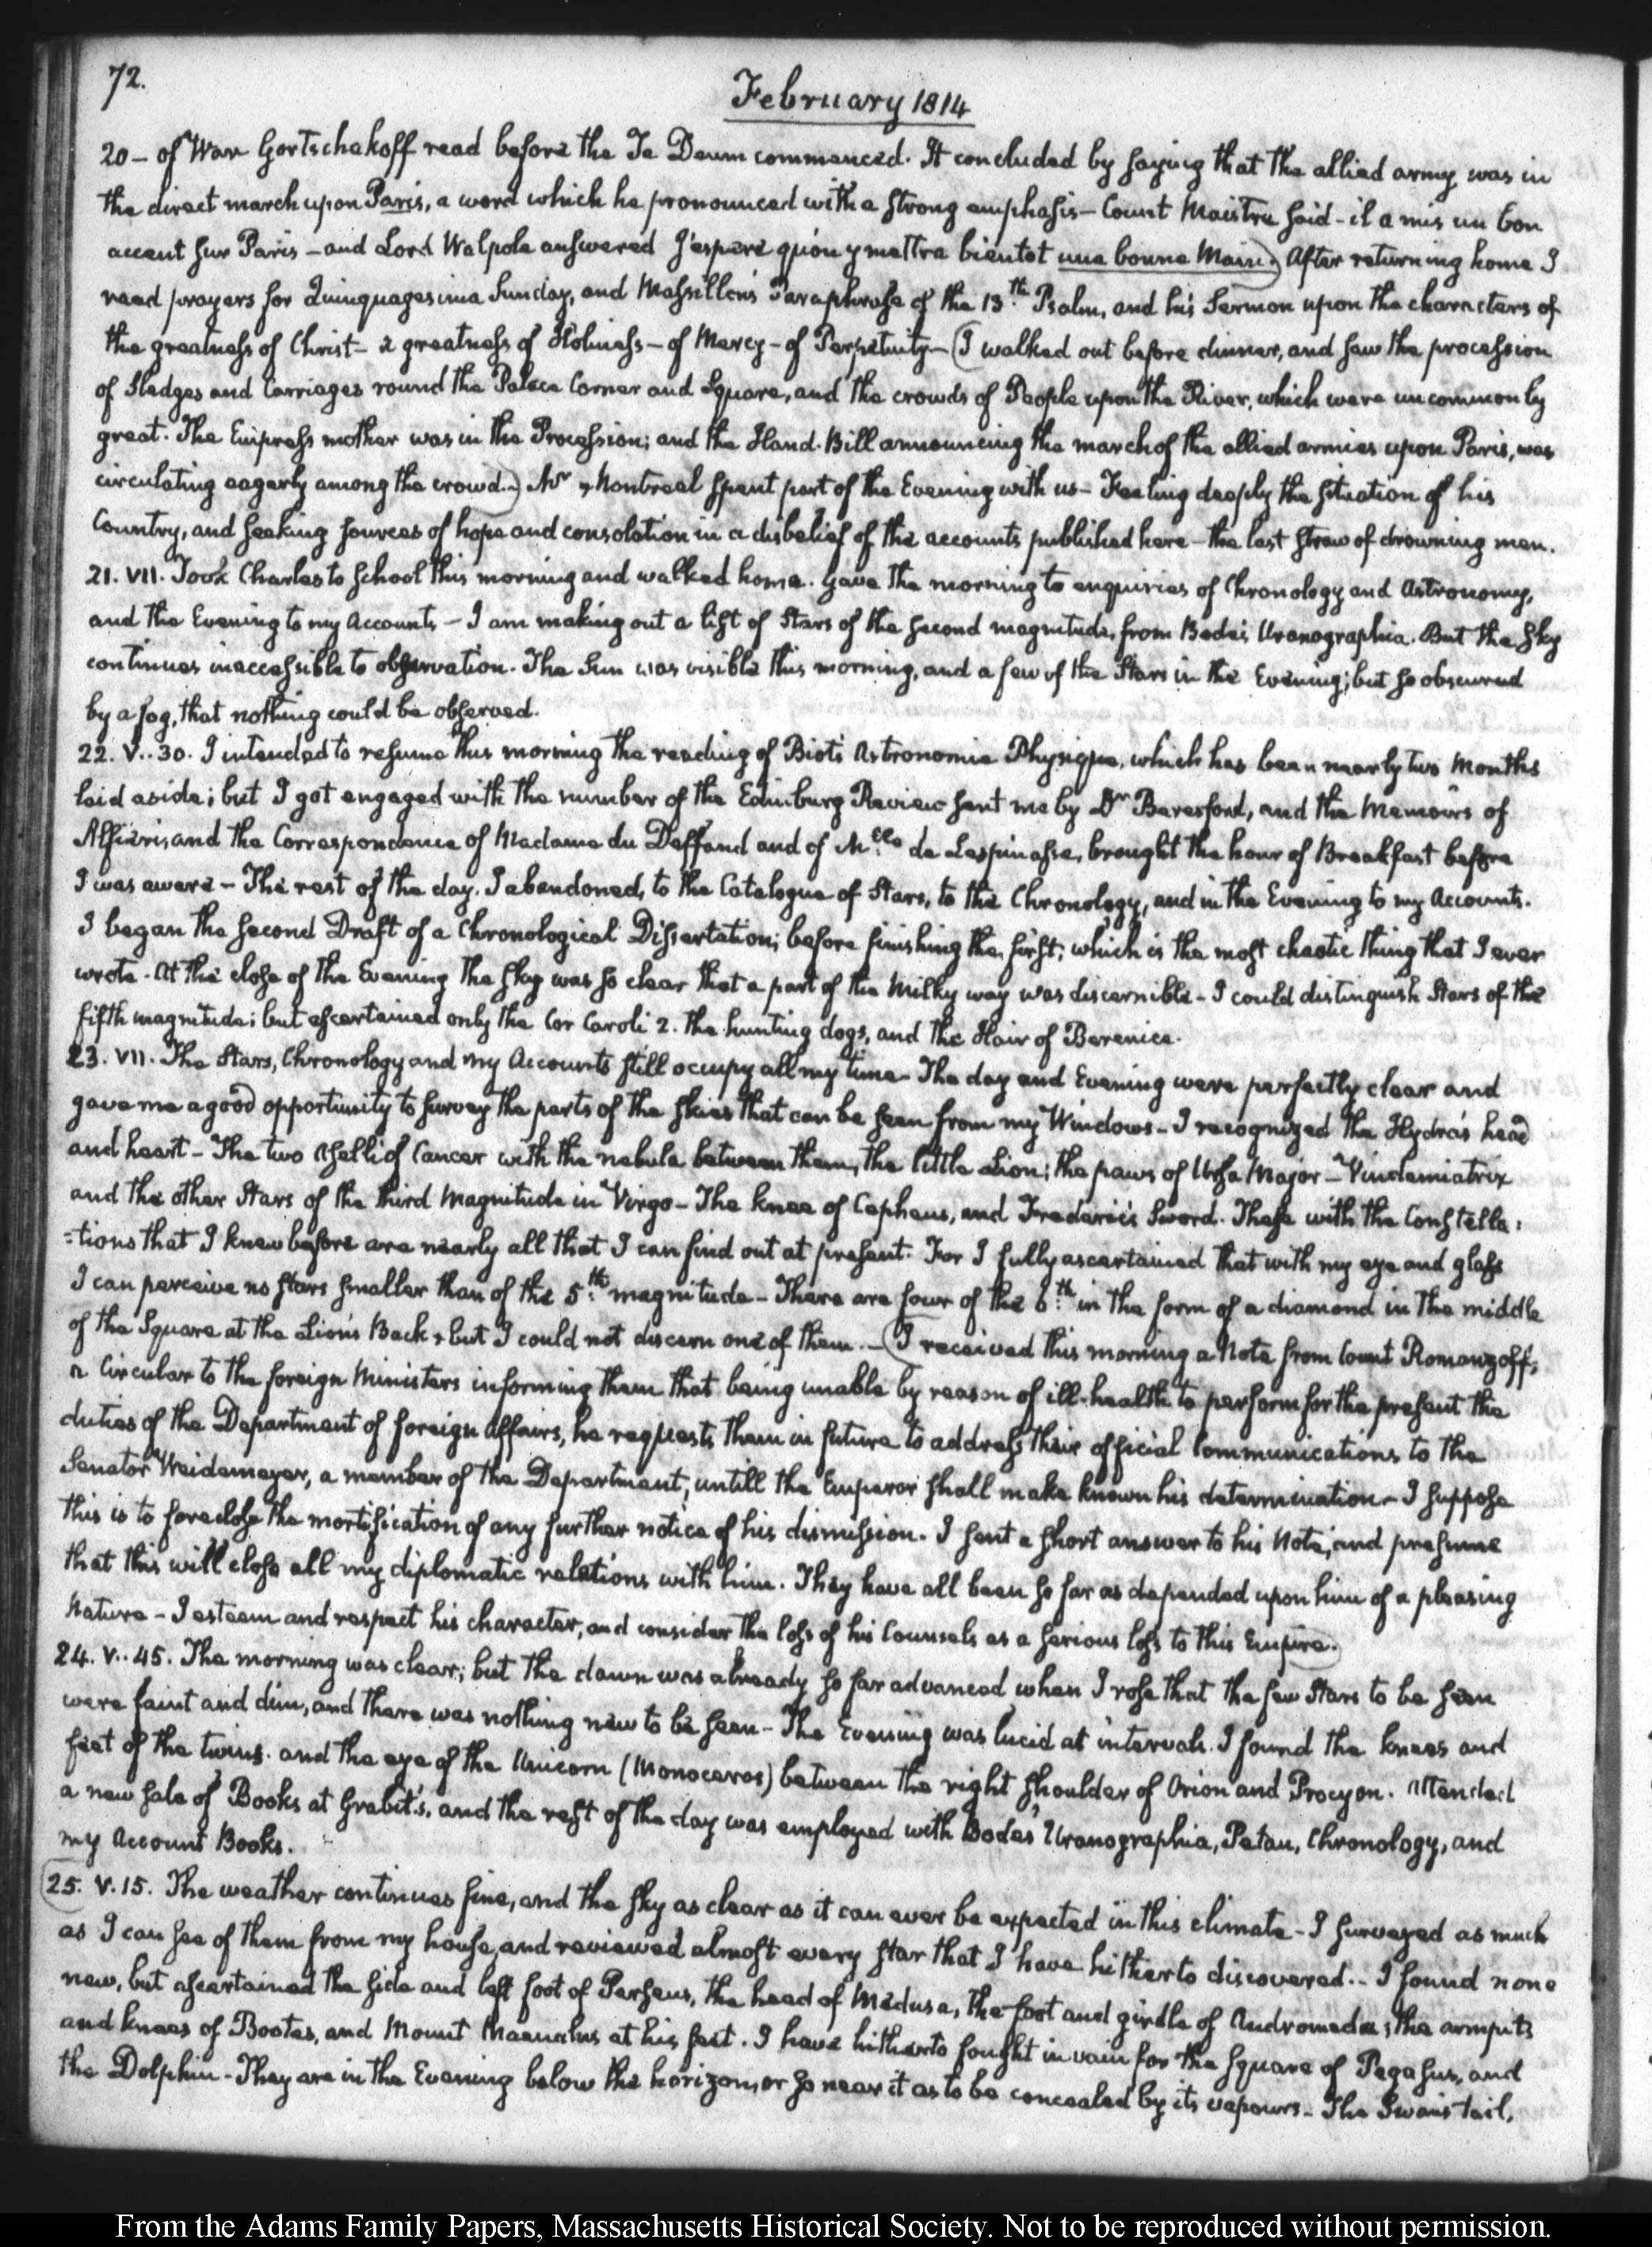 72.
February 1814
20 - of War Gortschakoff read before the Te Deum commenced. It concluded by saying that the allied army was in
the direct march upon Paris, a word which he pronounced with a strong emphasis - Count Maistre said - il a mis un bon
accent sur Paris - and Lord Walpole answered J'espere qu'on y mettra bientot une bonne Main.) After returning home I
read prayers for Quinquagesima Sunday, and Massillon's Paraphrase of the 13th. Psalm, and his Sermon upon the characters of
the greatness of Christ - a greatness of Holiness - of Mercy - of Perpetuity - (I walked out before dinner, and saw the procession
of Sledges and Carriages round the Palace Corner and Square, and the crowds of People upon the River, which were uncommonly
great. The Empress mother was in the Procession; and the Hand-Bill announcing the march of the allied armies upon Paris, was
circulating eagerly among the crowd.) Mr Montreal spent part of the Evening with us - Feeling deeply the situation of his
Country, and seeking sources of hope and consolation in a disbelief of the accounts published here - the last straw of drowning men.
21. VII. Took Charles to School this morning and walked home. Gave the morning to enquiries of Chronology and Astronomy,
and the Evening to my Accounts - I am making out a list of Stars of the second magnitude, from Bode's Uranographia. But the sky
continues inaccessible to observation. The Sun was visible this morning, and a few of the Stars in the Evening; but so obscured
by a fog, that nothing could be observed.
22. V..30. I intended to resume this morning the reading of Biot's Astronomie Physique, which has been nearly two Months
laid aside; but I got engaged with the number of the Edinburg Review sent me by Dr Beresford, and the Memoirs of
Alfieri, and the Correspondence of Madame du Deffand and of Mlle de Lespinasse, brought the hour of Breakfast before
I was aware - The rest of the day I abandoned, to the Catalogue of Stars, to the Chronology, and in the Evening to my Accounts.
I began the second Draft of a Chronological Dissertation; before finishing the first; which is the most chaotic thing that I ever
wrote. At the close of the Evening the sky was so clear that a part of the Milky way was discernible - I could distinguish Stars of the
fifth magnitude; but ascertained only the Cor Caroli 2. the hunting dogs, and the Hair of Berenice.
23. VII. The Stars, Chronology and my Accounts still occupy all my time - The day and Evening were perfectly clear and
gave me a good opportunity to survey the parts of the skies that can be seen from my Windows - I recognized the Hydra's head
and heart - The two Aselli of Cancer with the nebula between them, the little Lion; the paws of Ursa Major - Vindemiatrix
and the other Stars of the third Magnitude in Virgo - The knee of Cepheus, and Frederic's Sword. These with the Constella:
:tions that I knew before are nearly all that I can find out at present. For I fully ascertained that with my eye and glass
I can perceive no stars smaller than of the 5th. magnitude - There are four of the 6th. in the form of a diamond in the middle
of the Square at the Lion's Back, but I could not discern one of them. - (I received this morning a Note from Count Romanzoff,
a Circular to the foreign Ministers informing them that being unable by reason of ill-health to perform for the present the
duties of the Department of foreign Affairs, he requests them in future to address their official Communications to the
Senator Weidemeyer, a member of the Department, untill the Emperor shall make known his determination - I suppose
this is to foreclose the mortification of any further notice of his dismission. I sent a short answer to his Note, and presume
that this will close all my diplomatic relations with him. They have all been so far as depended upon him of a pleasing
Nature - I esteem and respect his character, and consider the loss of his Counsels as a serious loss to this Empire.)
24. V..45. The morning was clear; but the dawn was already so far advanced when I rose that the few Stars to be seen
were faint and dim, and there was nothing new to be seen - The Evening was lucid at intervals. I found the knees and
feet of the twins. and the eye of the Unicorn (Monoceros) between the right shoulder of Orion and Procyon. Attended
a new sale of Books at Grabit's, and the rest of the day was employed with Bode's Uranographia, Petau, Chronology, and
my Account Books.
(25. V. 15. The weather continues fine, and the sky as clear as it can ever be expected in this climate - I surveyed as much
as I can see of them from my house, and reviewed almost every star that I have hitherto discovered.. I found none
new, but ascertained the side and left foot of Perseus, the head of Medusa, the foot and girdle of Andromeda; the armpits
and knees of Bootes, and Mount Maenalus at his feet. I have hitherto sought in vain for the square of Pegasus, and
the Dolphin - They are in the Evening below the horizon, or so near it as to be concealed by its vapours - The Swan's tail,
From the Adams Family Papers, Massachusetts Historical Society. Not to be reproduced without permission.